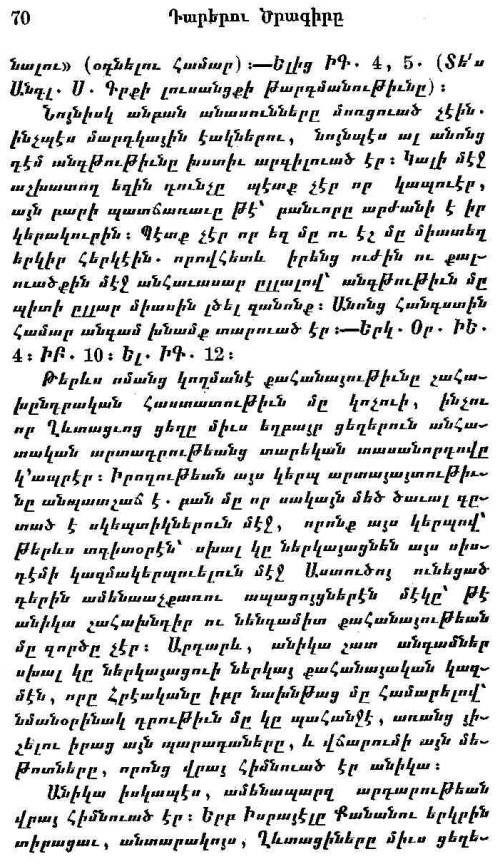 70 Դարերու Ծրագիրը
նալու» (օգնելու համար)։—Ելից ԻԳ. 4, 5. (Տե՛ս
Անգլ. Ս. Գրքի լուսանցքի թարդմանութիւնը)։
Նոյնիսկ անբան անասունները մոռցուած չէին.
ինչպէս մարդկային էակներու, նոյնպէս ալ անոնց
դէմ անգթութիւնը խստիւ արգիլուած էր։ Կալի մէջ
աշխատող եզին դունչը պէտք չէր որ կապուէր,
այն բարի պատճառաւը թէ՝ բանւորը արժանի է իր
կերակուրին։ Պէտք չէր որ եզ մը ու էշ մը միատեղ
երկիր հերկէին. որովհետեւ իրենց ուժին ու քալ-
ուածքին մէջ անհաւասար ըլլալով՝ անգթութիւն մը
պիտի ըլլար միասին լծել զանոնք։ Անոնց հանգստին
համար անգամ խնամք տարուած էր։—Երկ. Օր. ԻԵ.
4։ ԻԲ. 10։ Ել. ԻԳ. 12։
Թերեւս ոմանց կողմանէ քահանայութիւնը շահա-
խընդրական հաստատութիւն մը կոչուի, ինչու
որ Ղեւտացւոց ցեղը միւս եղբայր ցեղերուն անհա-
տական արտադրութեանց տարեկան տասանորդովը
կ՚ապրէր։ Իրողութեան այս կերպ արտայայտութիւ-
նը անպատշաճ է. բան մը որ սակայն մեծ ծաւալ գը-
տած է սկեպտիկներուն մէջ, որոնք այս կերպով՝
թերեւս տգիտօրէն՝ սխալ կը ներկայացնեն այս սիս-
դէմի կազմակերպուելուն մէջ Աստուծոյ ունեցած
դերին ամենաաչքառու ապացոյցներէն մէկը՝ թէ
անիկա շահախնդիր ու նենդամիտ քահանայութեան
մը գործը չէր։ Արդարեւ, անիկա շատ անգամներ
սխալ կը ներկայացուի ներկայ քահանայական կազ-
մէն, որը Հրէականը իբր նախնթաց մը համարելով՝
նմանօրինակ դրութիւն մը կը պահանջէ, առանց յի-
շելու իրաց այն պարագաները, և վճարումի այն մե-
թոտները, որոնց վրայ հիմնուած էր անիկա։
Անիկա իսկապէս, ամենապարզ արդարութեան
վրայ հիմնուած էր։ Երբ Իսրայէլը Քանանու երկրին
տիրացաւ, անտարակոյս, Ղեւտացիները միւս ցեղե-